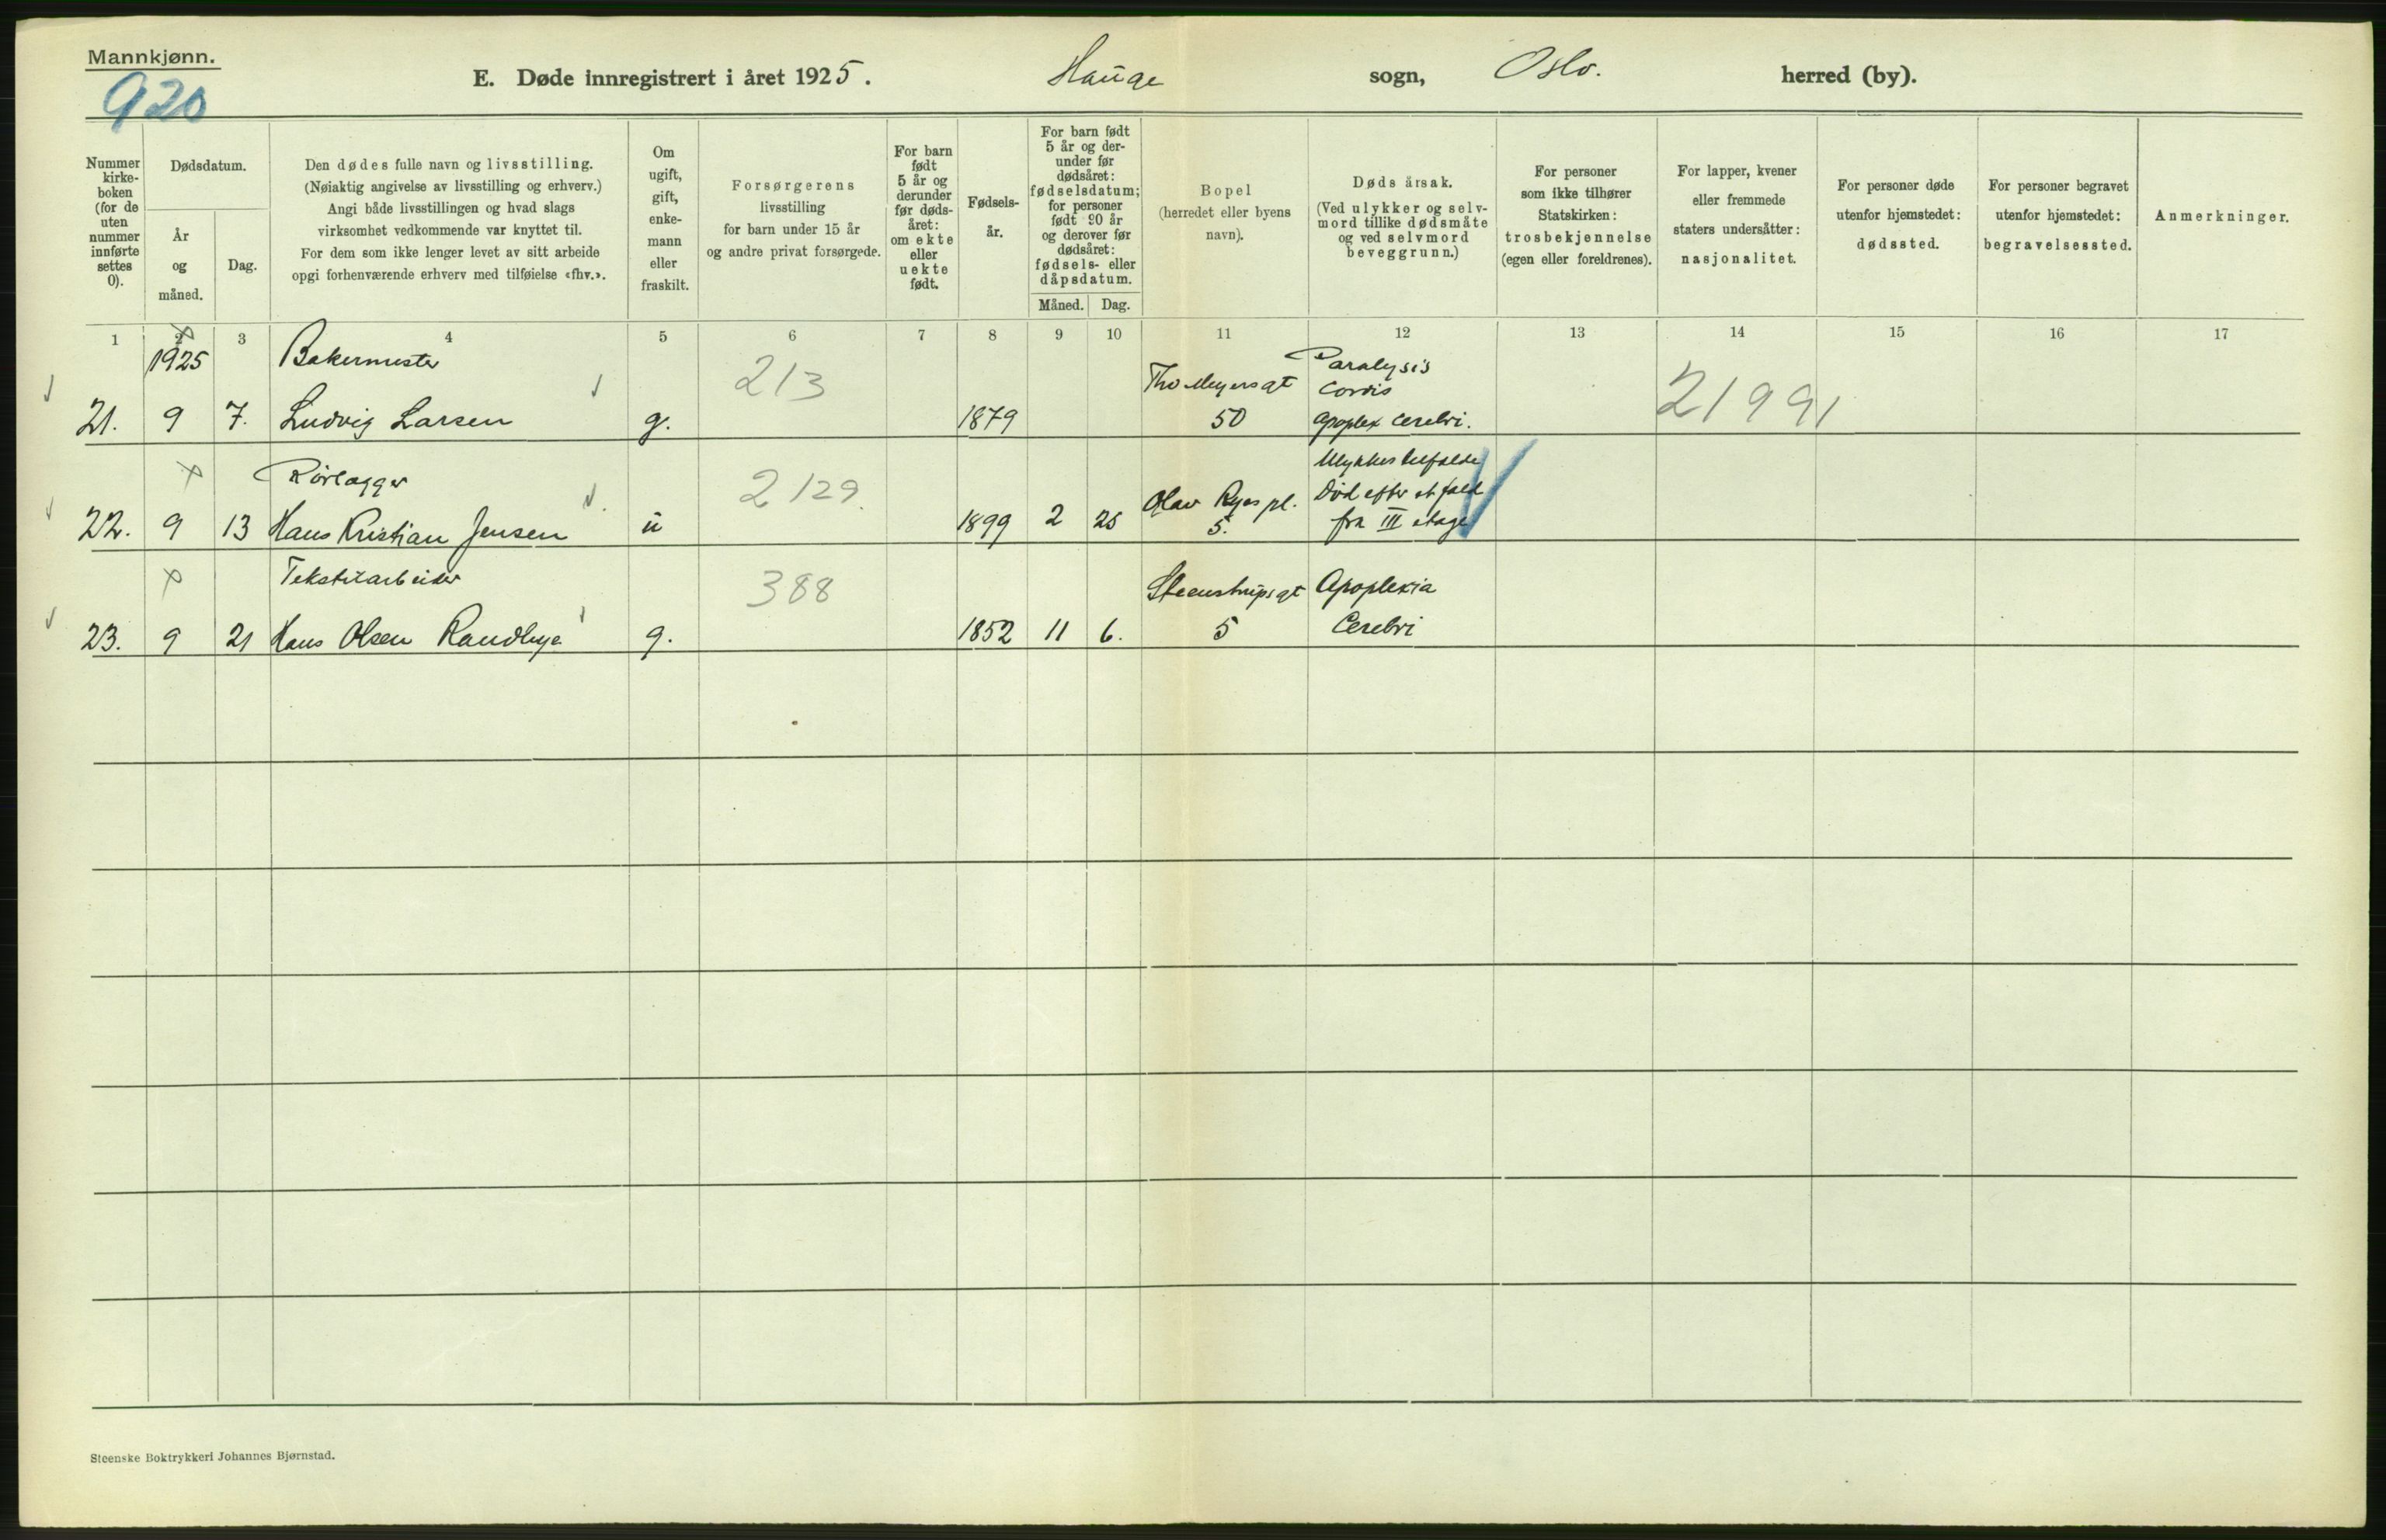 Mannkjønn.
920
E. Døde innregistrert i året 1925. Hauge sogn, Oslo. herred (by).
Nummer kirke-boken (for de uten nummer innførte settes 0).
Dødsdatum.
År og måned.
Dag.
Den dødes fulle navn og livsstilling.
(Nøiaktig angivelse av livsstilling og erhverv.)
Angi både livsstillingen og hvad slags
virksomhet vedkommende var knyttet til.
For dem som ikke lenger levet av sitt arbeide
opgi forhenværende erhverv med tilføielse «fhv.».
Om ugift, gift, enke-mann eller fraskilt.
Forsørgerens
livsstilling
for barn under 15 år
og andre privat forsørgede.
For barn født 5 år og derunder før døds-året: om ekte eller uekte født.
Fødsels-år.
For barn født 5 år og der-under før dødsåret: fødselsdatum; for personer født 90 år og derover før dødsåret: fødsels- eller dåpsdatum.
Måned. Dag.
Bopel
(herredet eller byens
navn).
Dødsårsak.
(Ved ulykker og selv-
mord tillike dødsmåte
og ved selvmord
beveggrunn.)
For personer
som ikke tilhører
Statskirken:
trosbekjennelse
(egen eller foreldrenes).
For lapper, kvener
eller fremmede
staters undersåtter:
nasjonalitet.
For personer døde
utenfor hjemstedet:
dødssted.
For personer begravet
utenfor hjemstedet:
begravelsessted.
Anmerkninger.
1 2 3 4 5 6 7 8 9 10 11 12 13 14 15 16 17
1925 Bakermester 213 Tho Meyersgt Paralysis
Cordis 21991
21. 9 7. Ludvig Larsen g. 1879 50 Apoplex Cerebri.
Rørlægger 2129. Olav Ryes pl. Ulykkestilfælde
Død efter et fald
22. 9 13 Hans Kristian Jensen u 1899 2 25 5. fra III etage
Tekstilarbeider 388 Steenstrupsgt Apoplexia
23. 9 21 Hans Olsen g. 1852 11 6. 5 Cerebri
Steenske Boktrykkeri Johannes Bjørnstad.